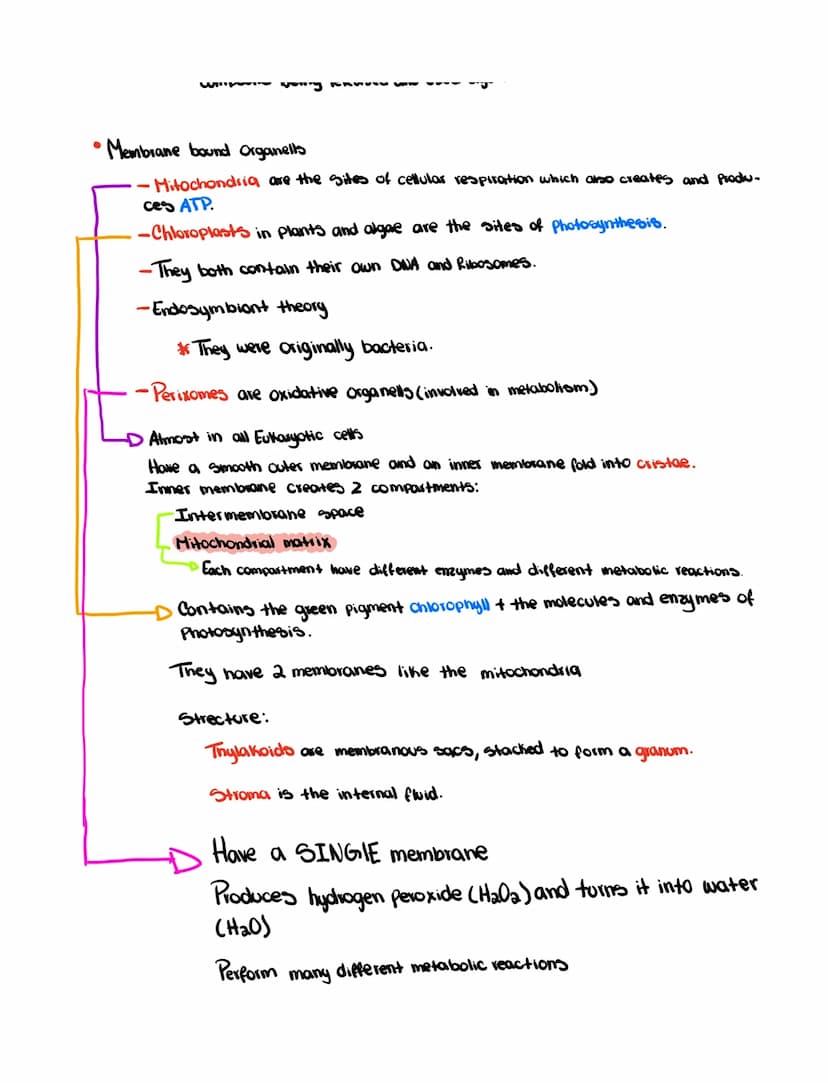 • Membrane bound Organells
- Mitochondria are the sites of cellular respiration which also creates and Produ-
ces ATP.
- Chloroplasts in plants and algae are the sites of Photosynthesis.
- They both contain their own DNA and Ribosomes.
- Endosymbiont theory
* They were originally bacteria.
- Perixomes are oxidative organells (involved in metabolism)
Almost in all Eukaryotic cells
Have a smooth outer membrane and an inner membrane fold into cristae.
Inner membrane creates 2 compartments:
Intermembrane space
Mitochondrial matrix
Each compartment have different enzymes and different metabolic reactions.
Contains the green pigment chlorophyll + the molecules and enzymes of
Photosynthesis.
They have 2 membranes like the mitochondria
Strecture:
Thylakoids are membranous sacs, stacked to form a granum.
Stroma is the internal fluid.
Have a SINGlE membrane
Produces hydrogen peroxide (H2O2) and turns it into water
(H2O)
Perform many different metabolic reactions